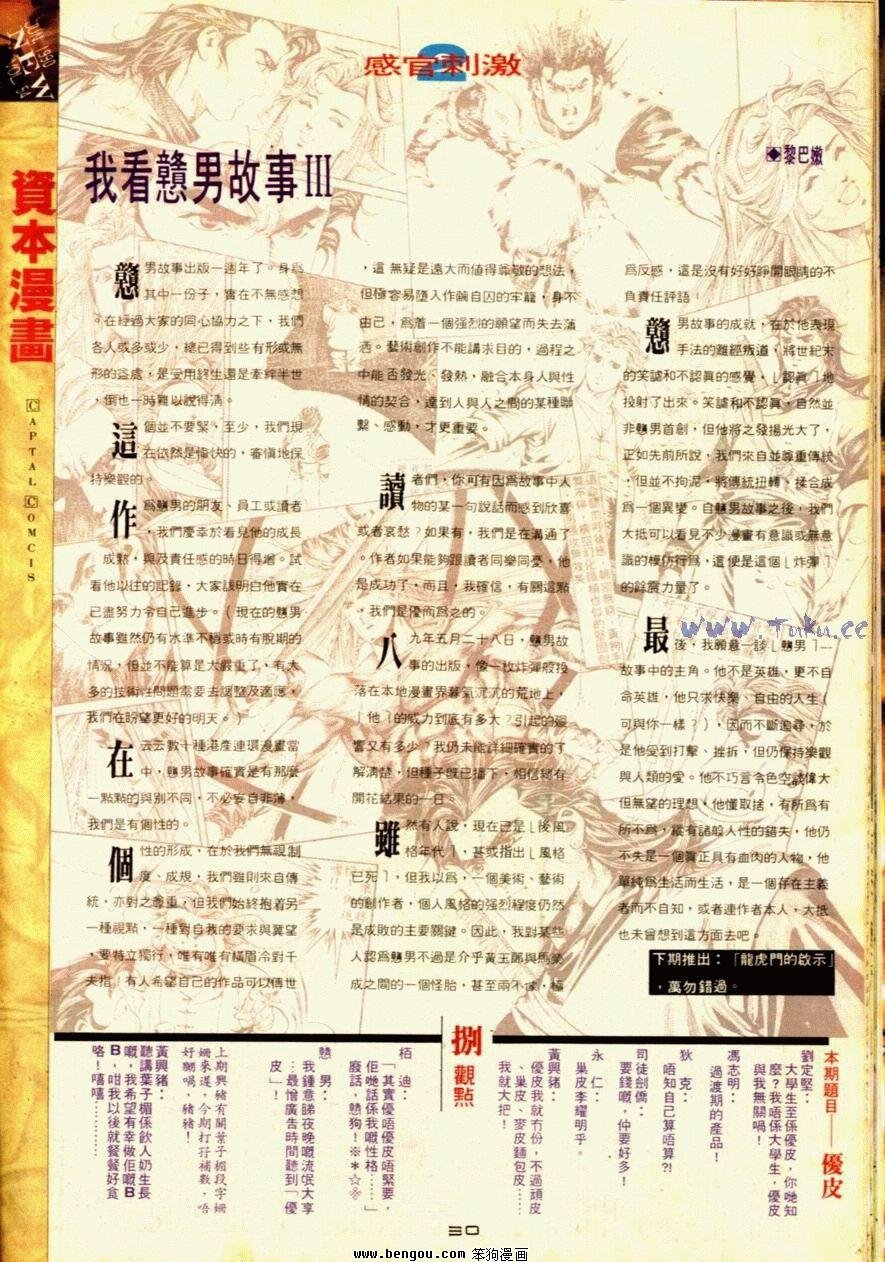 JUN 1990
NEW
VOL. 54
資本漫畫
CAPTAL COMCIS
感官刺激
2
我看戇男故事III
黎巴嫩
戇男故事出版一週年了。身爲
其中一份子,實在不無感想
。在經過大家的同心協力之下,我們
各人或多或少,總已得到些有形或無
形的益處,是受用終生還是牽絆半世
,倒也一時難以說得淸。
這個並不要緊,至少,我們現
在依然是愉快的,審愼地保
持樂觀的。
作爲戇男的朋友、員工或讀者
,我們慶幸於看見他的成長
、成熟,與及責任感的時日得增。試
看他以往的記錄,大家該明白他實在
已盡努力令自己進步。(現在的戇男
故事雖然仍有水準不穩或時有脫期的
情況,但並不能算是太嚴重了,有太
多的技術性問題需要去調整及適應,
我們在盼望更好的明天。)
在云云數十種港產連環漫畫當
中,戇男故事確實是有那麼
一點點的與別不同,不必妄自菲薄,
我們是有個性的。
個性的形成,在於我們無視制
度、成規,我們雖則來自傳
統,亦對之尊重,但我們始終抱着另
一種視點,一種對自我的要求與冀望
,要特立獨行,唯有唯有橫眉冷對千
夫指!有人希望自己的作品可以傳世
,這無疑是遠大而値得尊敬的想法,
但極容易墮入作繭自囚的牢籠,身不
由己,爲着一個强烈的願望而失去蕩
洒。藝術創作不能講求目的,過程之
中能否發光、發熱,融合本身人與性
情的契合,達到人與人之間的某種聯
繫、感動,才更重要。
讀者們,你可有因爲故事中人
物的某一句說話而感到欣喜
或者哀愁?如果有,我們是在溝通了
。作者如果能夠跟讀者同樂同憂,他
是成功了,而且,我確信,有關這點
,我們是優而爲之的。
八九年五月二十八日,戇男故
事的出版,像一枚炸彈般投
落在本地漫畫界暮氣沉沉的荒地上,
「他」的威力到底有多大?引起的迴
響又有多少?我仍未能詳細確實的了
解淸楚,但種子旣已播下,相信總有
開花結果的一日。
雖然有人說,現在已是「後風
格年代」,甚或指出「風格
已死」,但我以爲,一個美術、藝術
的創作者,個人風格的强烈程度仍然
是成敗的主要關鍵。因此,我對某些
人認爲戇男不過是介乎黃玉郎與馬榮
成之間的一個怪胎,甚至兩不像,極
爲反感,這是沒有好好睜開眼睛的不
負責任評語。
戇男故事的成就,在於他表現
手法的離經叛道,將世紀末
的笑謔和不認眞的感覺,「認眞」地
投射了出來。笑謔和不認眞,自然並
非戇男首創,但他將之發揚光大了,
正如先前所說,我們來自並尊重傳統
,但並不拘泥,將傳統扭轉、揉合成
爲一個異變。自戇男故事之後,我們
大抵可以看見不少漫畫有意識或無意
識的模仿行爲,這便是這個「炸彈」
的餘震力量了。
最後,我願意一談「戇男」—
故事中的主角。他不是英雄,更不自
命英雄,他只求快樂、自由的人生(
可與你一樣?),因而不斷追尋,於
是他受到打擊、挫拆,但仍保持樂觀
與人類的愛。他不巧言令色空談偉大
但無望的理想,他懂取捨,有所爲有
所不爲,縱有諸般人性的錯失,他仍
不失是一個眞正具有血肉的人物,他
單純爲生活而生活,是一個存在主義
者而不自知,或者連作者本人,大抵
也未曾想到這方面去吧。
下期推出:「龍虎門的啟示」
,萬勿錯過。
www.Tuku.cc
本期題目——優皮
劉定堅:
大學生至係優皮,你哋知
麼?我唔係大學生,優皮
與我無關喎!
馮志明:
過渡期的產品!
狄 克:
唔知自己算唔算?!
司徒劍僑:
要錢嘅,仲要好多!
永 仁:
巢皮李耀明乎。
黃興豬:
優皮我就冇份,不過頑皮
、巢皮、麥皮麵包皮……
我就大把!
捌觀點
栢 迪:
「其實優唔優皮唔緊要,
佢哋話係我嘅性格……」
廢話,戇狗!※*☆※
戇 男:
我鍾意睇夜晚嘅流氓大享
…最憎廣告時間聽到「優
皮」!
上期興豬有關葉子楣段字姍
姍來遲,今期打孖補數,唔
好嬲喎,豬豬!
黃興豬:
聽講葉子楣係飲人奶生長
嘅,我希望有幸做佢嘅B
B,咁我以後就餐餐好食
咯!嘻嘻…………
30
www.bengou.com 笨狗漫画